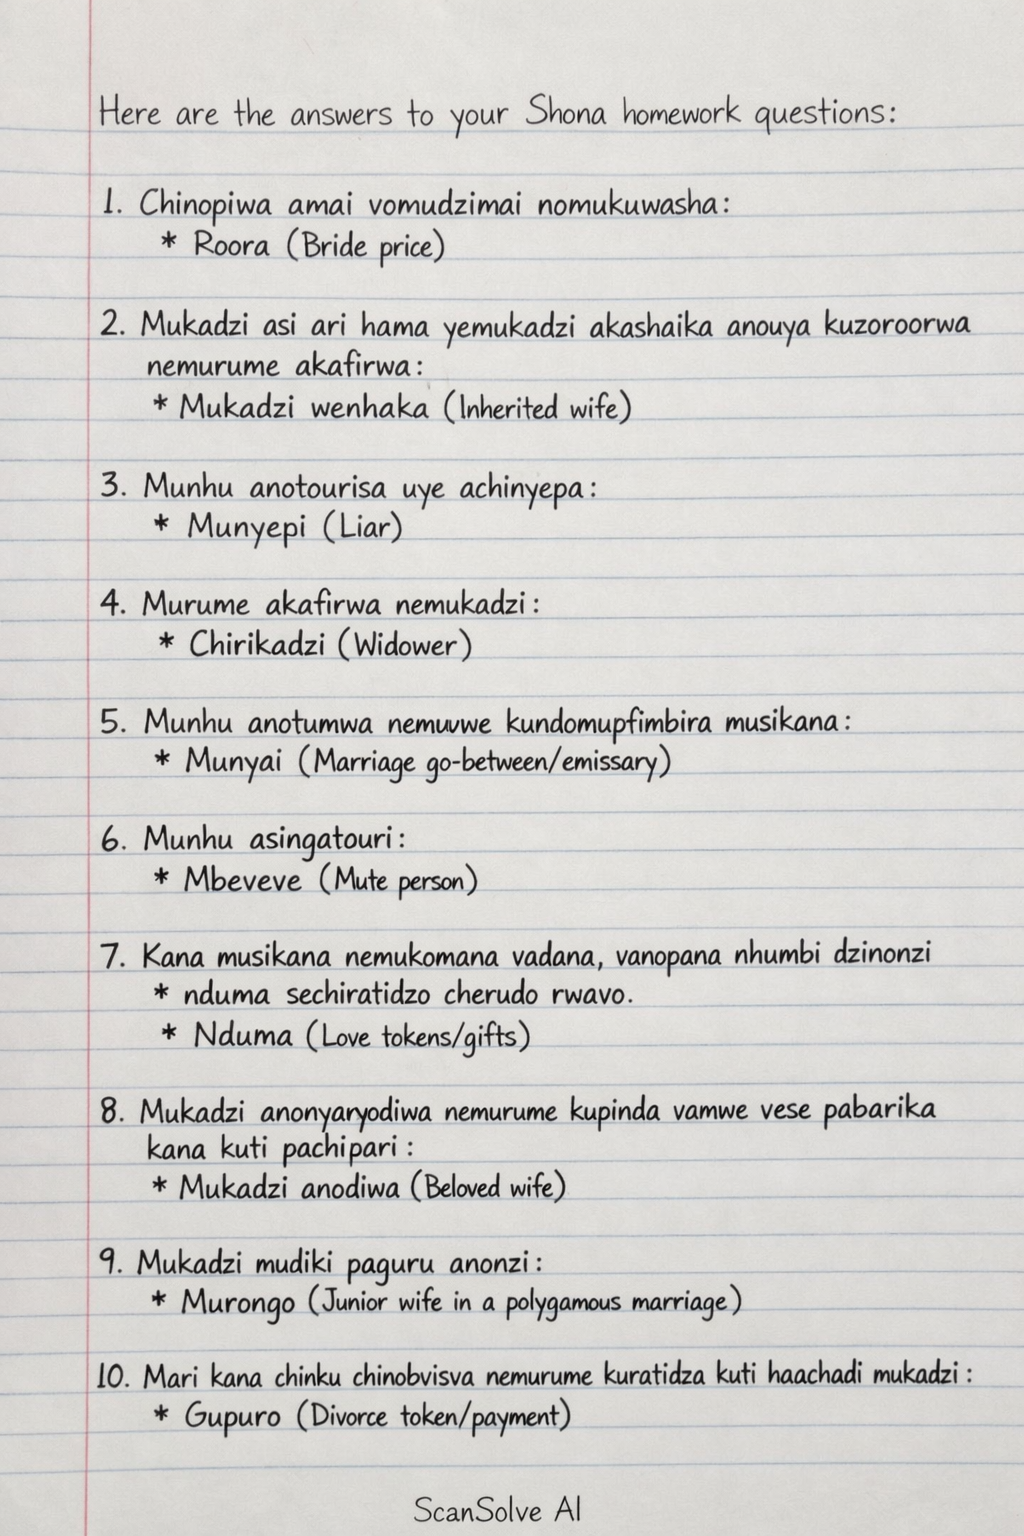 Here are the answers to your Shona homework questions:
1. Chinopiwa amai vomudzimai nomukuwasha:
* Roora (Bride price)
2. Mukadzi asi ari hama yemukadzi akashaika anouya kuzoroorwa
nemurume akafirwa:
* Mukadzi wenhaka (Inherited wife)
3. Munhu anotourisa uye achinyepa:
* Munyepi (Liar)
4. Murume akafirwa nemukadzi:
* Chirikadzi (Widower)
5. Munhu anotumwa nemuvwe kundomupfimbira musikana:
* Munyai (Marriage go-between/emissary)
6. Munhu asingatouri:
* Mbeveve (Mute person)
7. Kana musikana nemukomana vadana, vanopana nhumbi dzinonzi
* nduma sechiratidzo cherudo rwavo.
* Nduma (Love tokens/gifts)
8. Mukadzi anonyaryodiwa nemurume kupinda vamwe vese pabarika
kana kuti pachipari:
* Mukadzi anodiwa (Beloved wife)
9. Mukadzi mudiki paguru anonzi:
* Murongo (Junior wife in a polygamous marriage)
10. Mari kana chinku chinobvisva nemurume kuratidza kuti haachadi mukadzi:
* Gupuro (Divorce token/payment)
ScanSolve AI